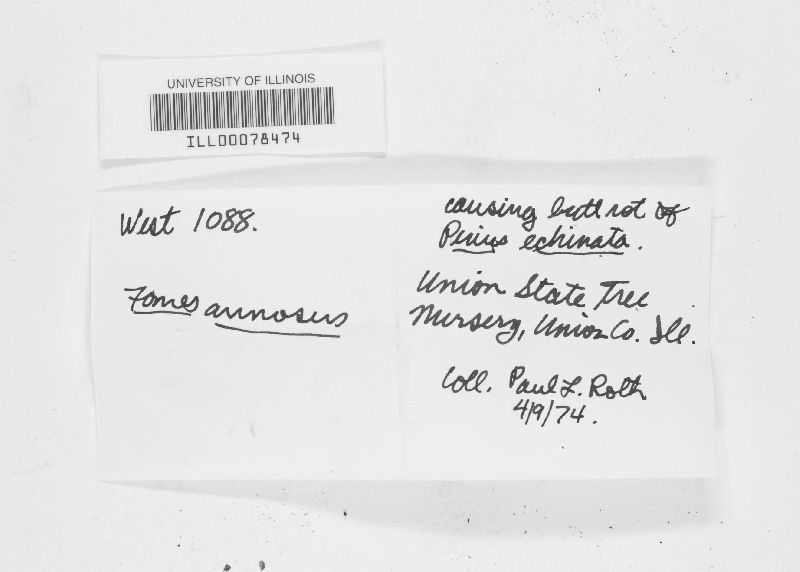 UNIVERSITY OF ILLINOIS
ILL00078474
West 1088.
Fomes annosus
causing butt rot of
Pinus echinata.
Union State Tree
Nursery, Union Co. Ill.
Coll. Paul L. Roth
4/9/74.